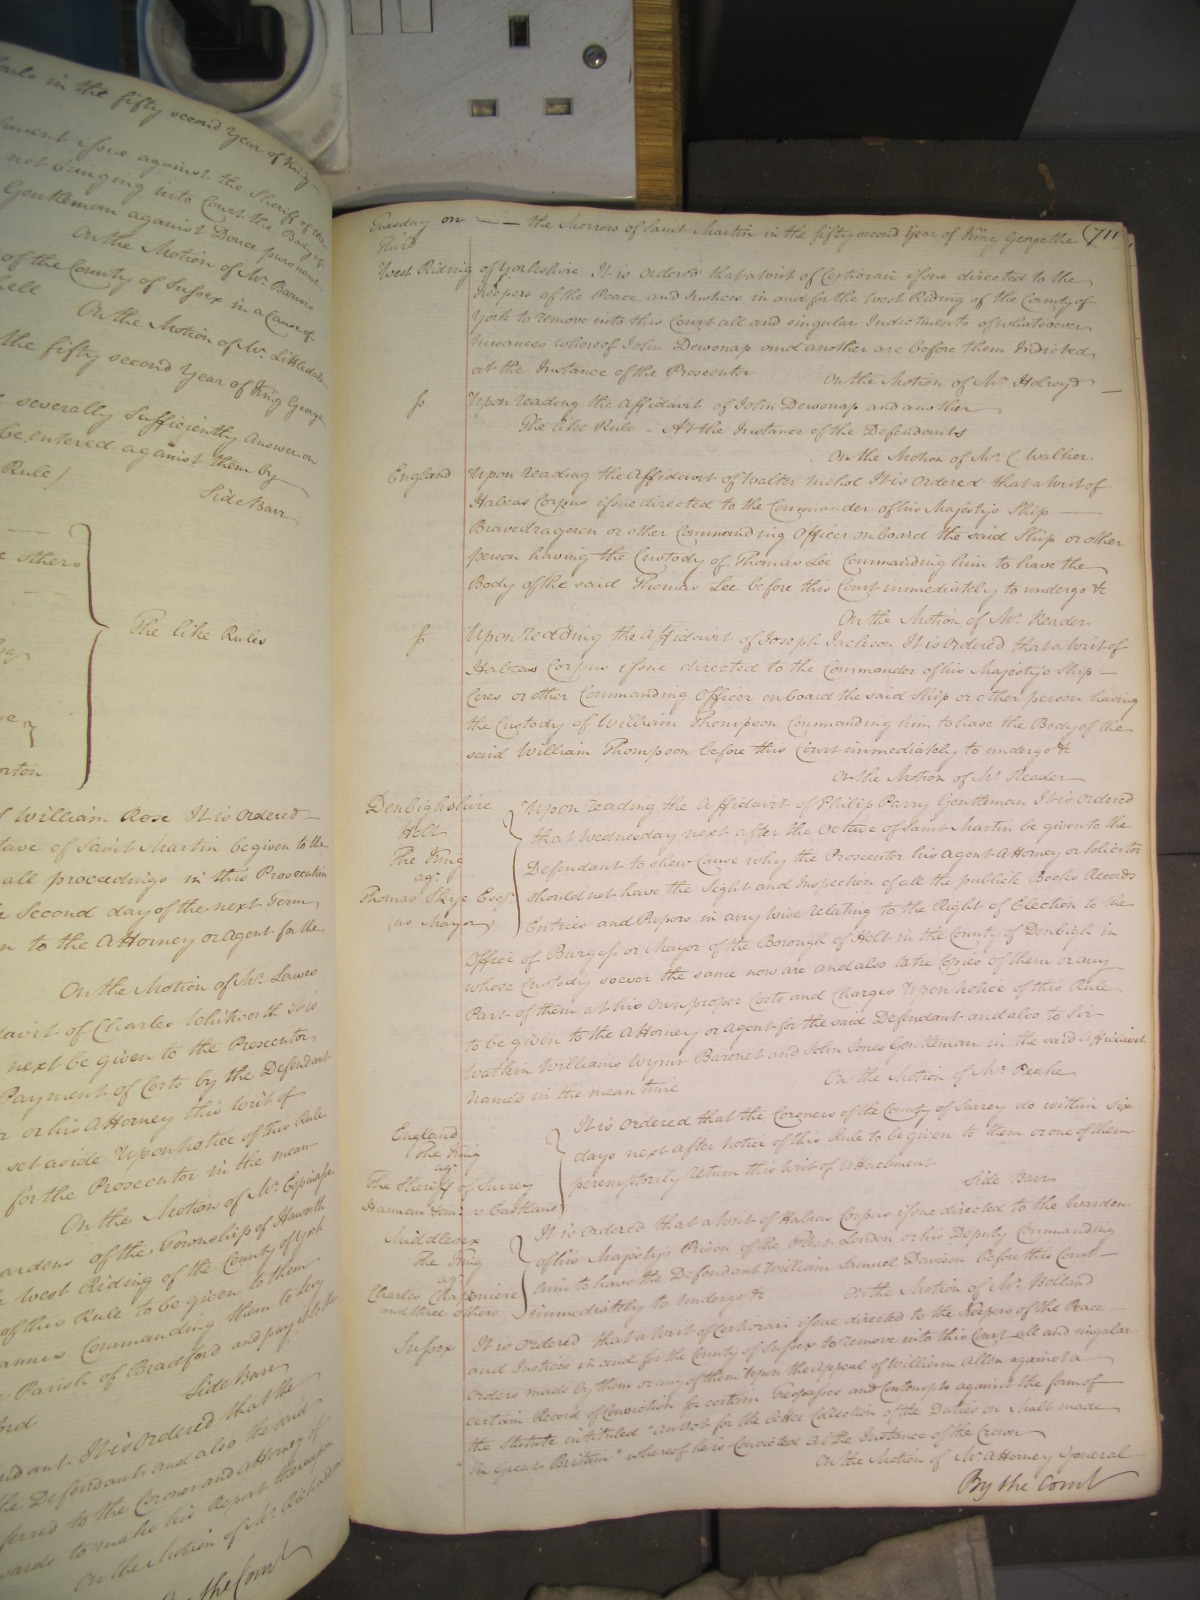 fifty second year of King
issue against the Sheriff of
not bringing into Court the Body of
Gentleman against Douce pursuant
On the Motion of Mr. Barnes
of the County of Sussex in a Cause of
On the Motion of Mr. Littledale
the fifty second Year of King George
severally sufficiently answer on
be entered against them by
Rule/
Side Barr
others
The like Rules
William Rose It is Ordered
of Saint Martin be given to the
all proceedings in this Prosecution
Second day of the next Term
to the Attorney or agent for the
On the Motion of Mr. Lawes
of Charles Whitworth It is
next be given to the Prosecutor
Payment of Costs by the Defendant
or his Attorney this Writ of
set aside Upon notice of this Rule
for the Prosecutor in the mean
On the Motion of Mr. Espinasse
of the Township of Haworth
West Riding of the County of York
of this Rule to be given to them
Commanding them to levy
Parish of Bradford and pay
Side Barr
It is Ordered that the
Defendants and also the said
to the Coroner and Attorney of
to make his Report thereupon
On the Motion of Mr. Richardson
By the Court
Tuesday on — — the Morrow of Saint Martin in the fifty second Year of King George the (711
Third
West Riding of Yorkshire It is Ordered that a Writ of Certiorari issue directed to the
Keepers of the Peace and Justices in and for the West Riding of the County of
York to remove into this Court all and singular Indictments of whatsoever
Nuisances whereof John Dewsnap and another are before them Indicted
at the Instance of the Prosecutor
On the Motion of Mr. Holroyd —
So Upon reading the Affidavit of John Dewsnap and another
The like Rule - At the Instance of the Defendants
On the Motion of Mr. C Walker
England Upon reading the Affidavit of Walter Nichol It is Ordered that a Writ of
Habeas Corpus issue directed to the Commander of his Majestys Ship
Bravedrageren or other Commanding Officer on board the said Ship or other
person having the Custody of Thomas Lee Commanding him to have the
Body of the said Thomas Lee before this Court immediately to undergo &c
On the Motion of Mr. Reader
So Upon reading the Affidavit of Joseph Jackson It is Ordered that a Writ of
Habeas Corpus issue directed to the Commander of his Majestys Ship —
Ceres or other Commanding Officer on board the said Ship or other person having
the Custody of William Thompson Commanding him to have the Body of the
said William Thompson before this Court immediately to undergo &c
On the Motion of Mr. Reader
Denbighshire Upon reading the Affidavit of Philip Parry Gentleman It is Ordered
Holt that Wednesday next after the Octave of Saint Martin be given to the
The King Defendant to shew Cause why the Prosecutor his Agent Attorney or Solicitor
agt. should not have the Sight and Inspection of all the publick Books Records
Thomas Skye Esqr.
(as Mayor) Entries and Papers in any wise relating to the Right of Election to the
Office of Burgess or Mayor of the Borough of Holt in the County of Denbigh in
whose Custody soever the same now are and also take Copies of them or any
Part of them at his own proper Costs and Charges Upon notice of this Rule
to be given to the Attorney or Agent for the said Defendant and also to Sir
Watkin Williams Wynn Baronet and John Jones Gentleman in the said Affidavit
Named in the mean time
On the Motion of Mr. Peake
England It is Ordered that the Coroners of the County of Surrey do within six
The King days next after notice of this Rule to be given to them or one of them
agt. peremptorily return this Writ of Attachment
The Sheriff of Surrey
Side Barr
v Eastland
Middlesex It is Ordered that a Writ of Habeas Corpus issue directed to the Warden
The King of his Majestys Prison of the Fleet London or his Deputy Commanding
agt. him to have the Defendant William Samuel Davison before this Court
Charles
and three others immediately to undergo &c
On the Motion of Mr. Bolland
Sussex It is Ordered that a Writ of Certiorari issue directed to the Keepers of the Peace
and Justices in and for the County of Sussex to remove into this Court all and singular
Orders made by them or any of them Upon the Appeal of William Allen against a
Certain Record of Conviction for certain Trespasses and Contempts against the form of
the Statute intituled "An Act for the better Collection of the Duties on Malt made
"in Great Britain" whereof he is Convicted At the Instance of the Crown
On the Motion of Mr. Attorney General
By the Court